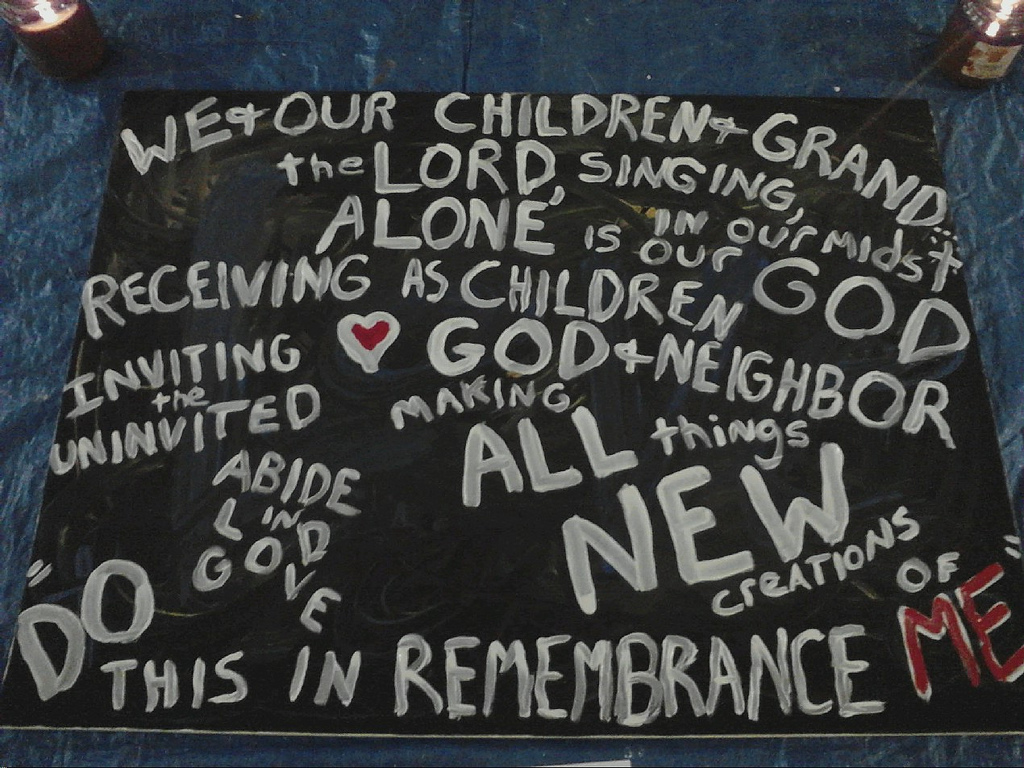 WE & OUR CHILDREN & GRAND...
the LORD, SINGING,
ALONE, IS IN OUR MIDST
OUR GOD
RECEIVING AS CHILDREN
INVITING ♥ GOD & NEIGHBOR
the
UNINVITED MAKING
ALL things
ABIDE NEW
IN creATIONS
L
GOD OF
V
E
"DO ME"
THIS IN REMEMBRANCE